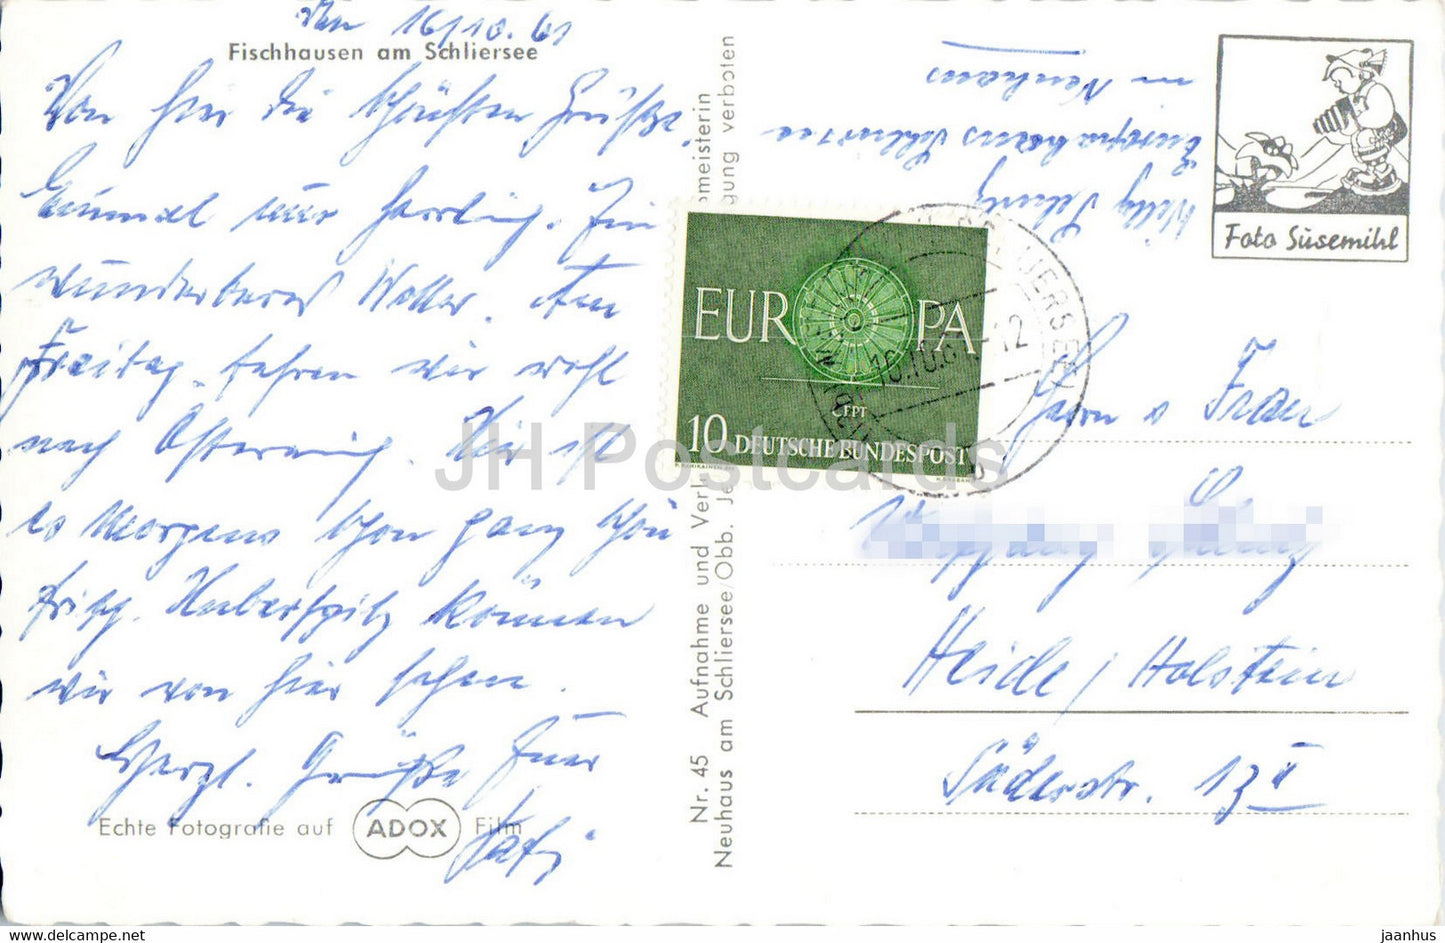 den 16/10.61
Fischhausen am Schliersee
Von hier die schönsten Grüße.
Einmal nur herrlich. Ein
wunderbares Wetter. Am
Freitag fahren wir wohl
nach Österreich. Hier ist
es Morgens schon ganz schön
frisch. Huberspitz können
wir von hier sehen.
Herzl. Grüße Euer
Echte Fotografie auf ADOX Film
Nr. 45 Aufnahme und Verl
meisterin
Neuhaus am Schliersee/Obb. Je
gung verboten
Willy
Europahaus Schliersee
in Neuhaus
Foto Süsemihl
EUROPA
CEPT
10 DEUTSCHE BUNDESPOST
16.10.61-12
Herrn u Frau
Heide / Holstein
Süderstr.
JH Postcards
www.delcampe.net
jaanhus